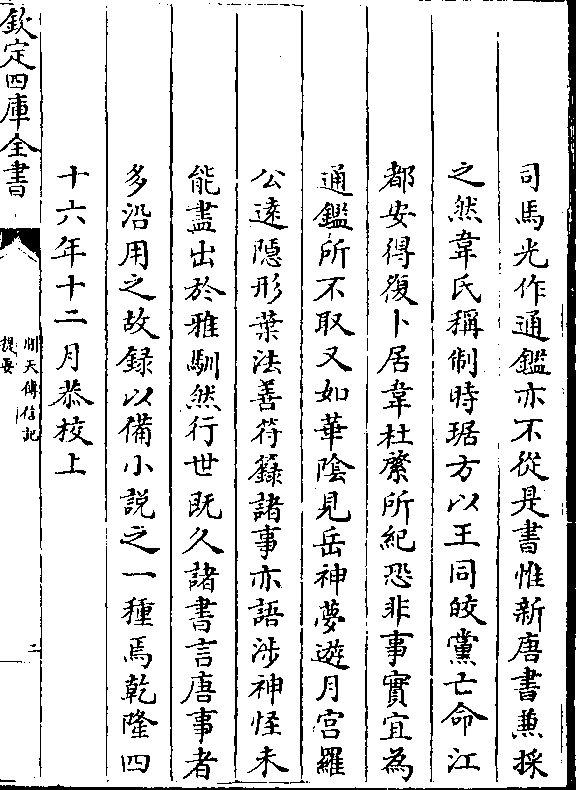 司馬光作通鑑亦不從是書惟新唐書兼採
之然韋氏稱制時琚方以王同皎黨亡命江
都安得復卜居韋杜綮所紀恐非事實宜為
通鑑所不取又如華陰見岳神夢遊月宫羅
公遠隱形葉法善符籙諸事亦語涉神怪未
能盡出於雅馴然行世既久諸書言唐事者
多沿用之故録以備小説之一種焉乾隆四
十六年十二月恭校上
欽定四庫全書
開天傳信記
提要
二